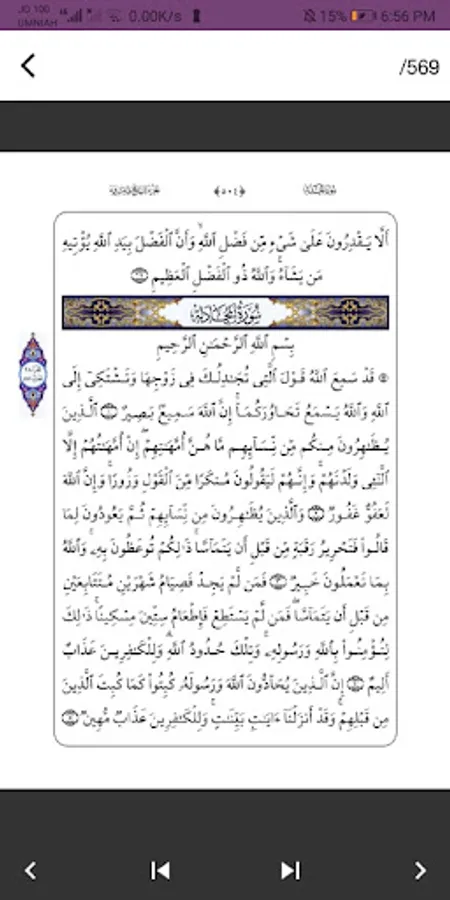 JO 100
UMNIAH
0.00K/s
15%
6:56 PM
/569
سورة المجادلة
﴿٥٠٤﴾
أَلَّا يَقْدِرُونَ عَلَىٰ شَىْءٍ مِّن فَضْلِ ٱللَّهِ وَأَنَّ ٱلْفَضْلَ بِيَدِ ٱللَّهِ يُؤْتِيهِ
مَن يَشَآءُ وَٱللَّهُ ذُو ٱلْفَضْلِ ٱلْعَظِيمِ
سُورَةُ المُجَادِلَةِ
بِسْمِ ٱللَّهِ ٱلرَّحْمَٰنِ ٱلرَّحِيمِ
۞ قَدْ سَمِعَ ٱللَّهُ قَوْلَ ٱلَّتِى تُجَٰدِلُكَ فِى زَوْجِهَا وَتَشْتَكِىٓ إِلَى
ٱللَّهِ وَٱللَّهُ يَسْمَعُ تَحَاوُرَكُمَآ إِنَّ ٱللَّهَ سَمِيعٌۢ بَصِيرٌ ٱلَّذِينَ
يُظَٰهِرُونَ مِنكُم مِّن نِّسَآئِهِم مَّا هُنَّ أُمَّهَٰتِهِمْ إِنْ أُمَّهَٰتُهُمْ إِلَّا
ٱلَّٰٓـِٔى وَلَدْنَهُمْ وَإِنَّهُمْ لَيَقُولُونَ مُنكَرًا مِّنَ ٱلْقَوْلِ وَزُورًا وَإِنَّ ٱللَّهَ
لَعَفُوٌّ غَفُورٌ وَٱلَّذِينَ يُظَٰهِرُونَ مِن نِّسَآئِهِمْ ثُمَّ يَعُودُونَ لِمَا
قَالُوا۟ فَتَحْرِيرُ رَقَبَةٍ مِّن قَبْلِ أَن يَتَمَآسَّا ذَٰلِكُمْ تُوعَظُونَ بِهِۦ وَٱللَّهُ
بِمَا تَعْمَلُونَ خَبِيرٌ فَمَن لَّمْ يَجِدْ فَصِيَامُ شَهْرَيْنِ مُتَتَابِعَيْنِ
مِن قَبْلِ أَن يَتَمَآسَّا فَمَن لَّمْ يَسْتَطِعْ فَإِطْعَامُ سِتِّينَ مِسْكِينًا ذَٰلِكَ
لِتُؤْمِنُوا۟ بِٱللَّهِ وَرَسُولِهِۦ وَتِلْكَ حُدُودُ ٱللَّهِ وَلِلْكَٰفِرِينَ عَذَابٌ
أَلِيمٌ إِنَّ ٱلَّذِينَ يُحَآدُّونَ ٱللَّهَ وَرَسُولَهُۥ كُبِتُوا۟ كَمَا كُبِتَ ٱلَّذِينَ
مِن قَبْلِهِمْ وَقَدْ أَنزَلْنَآ ءَايَٰتٍۭ بَيِّنَٰتٍ وَلِلْكَٰفِرِينَ عَذَابٌ مُّهِينٌ